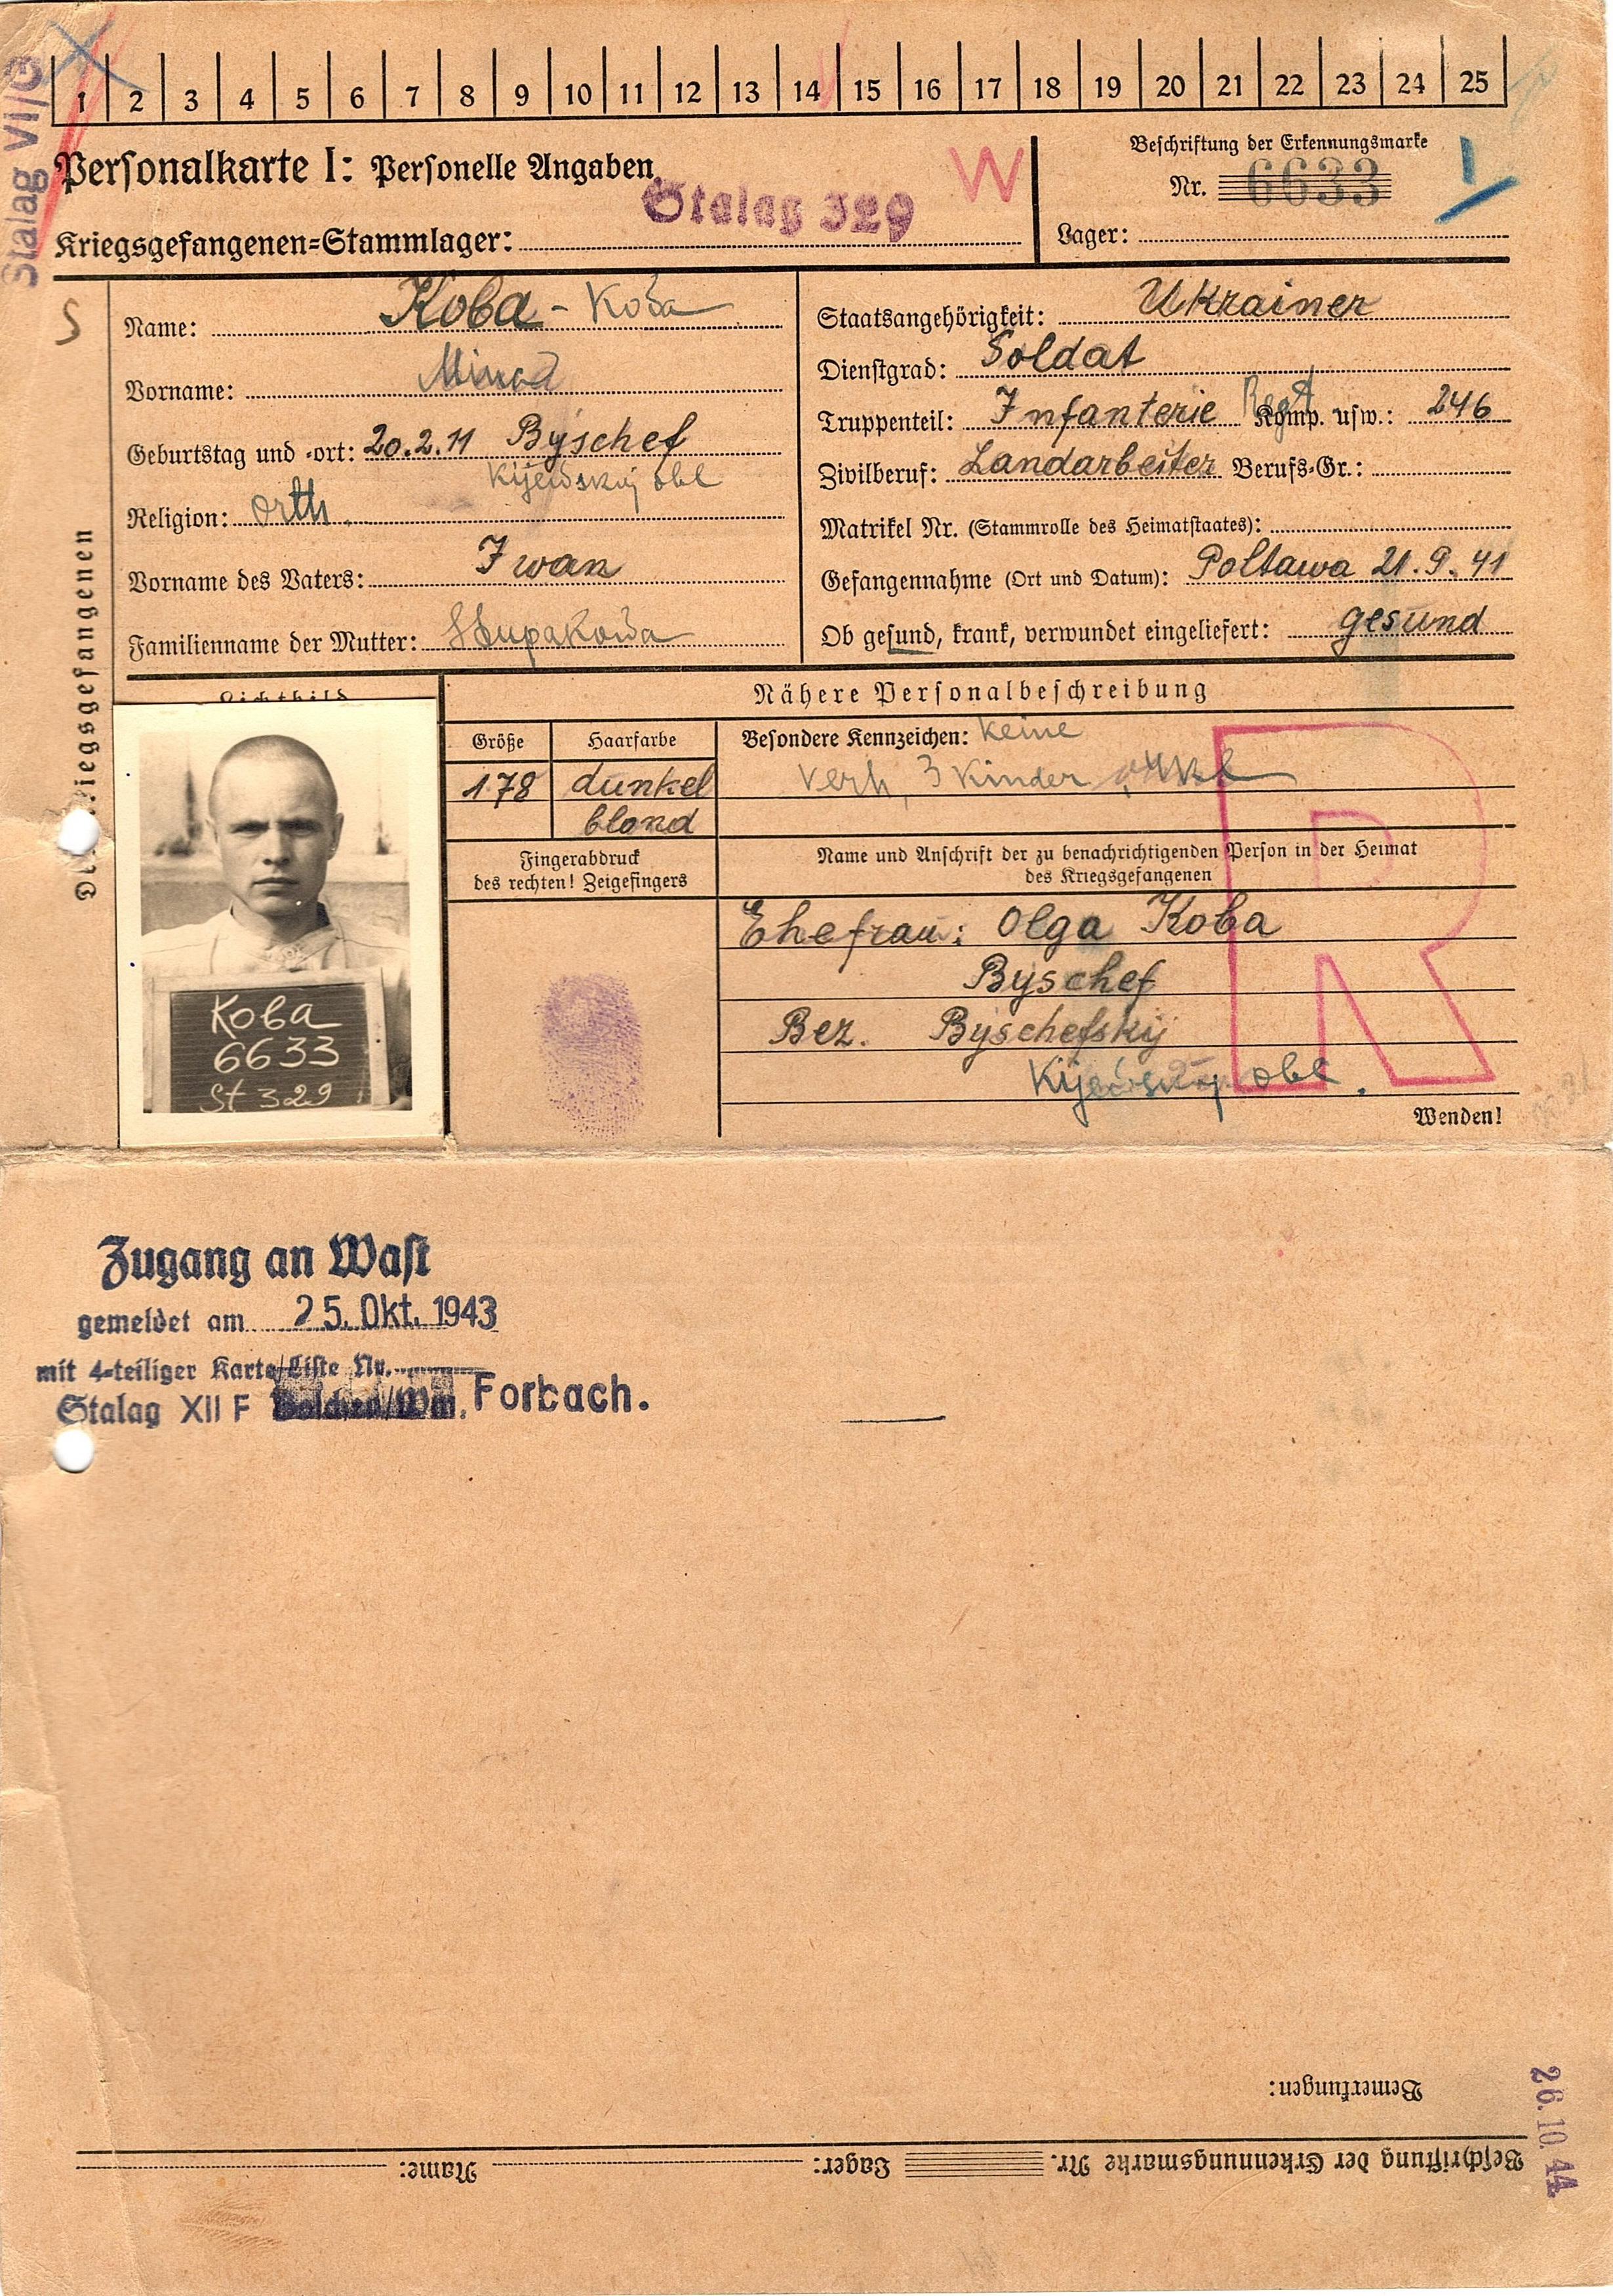 Stalag VI/G
1 2 3 4 5 6 7 8 9 10 11 12 13 14 15 16 17 18 19 20 21 22 23 24 25
Personalkarte I: Personelle Angaben
W
Beschriftung der Erkennungsmarke
Nr. 6633
Kriegsgefangenen-Stammlager: Stalag 329
Lager:
S
Des Kriegsgefangenen
Name: Koba - Koba
Vorname:
Geburtstag und -ort: 20.2.11 Byschef
Kijewskij obl
Religion: orth.
Vorname des Vaters: Iwan
Familienname der Mutter:
Staatsangehörigkeit: Ukrainer
Dienstgrad: Soldat
Truppenteil: Infanterie Regt Komp. usw.: 246
Zivilberuf: Landarbeiter Berufs-Gr.:
Matrikel Nr. (Stammrolle des Heimatstaates):
Gefangennahme (Ort und Datum): Poltawa 21.9.41
Ob gesund, krank, verwundet eingeliefert: gesund
Lichtbild
Koba
6633
St 329
Nähere Personalbeschreibung
Größe
178
Haarfarbe
dunkel
blond
Besondere Kennzeichen: keine
verh, 3 Kinder
Fingerabdruck
des rechten! Zeigefingers
Name und Anschrift der zu benachrichtigenden Person in der Heimat
des Kriegsgefangenen
R
Ehefrau: Olga Koba
Byschef
Bez. Byschefskij
Kijewskij obl.
Wenden!
Zugang an Wast
gemeldet am 25. Okt. 1943
mit 4-teiliger Karte/Liste Nr.
Stalag XII F Forbach.
Bemerkungen:
Beschriftung der Erkennungsmarke Nr. Lager: Name:
26.10.44.